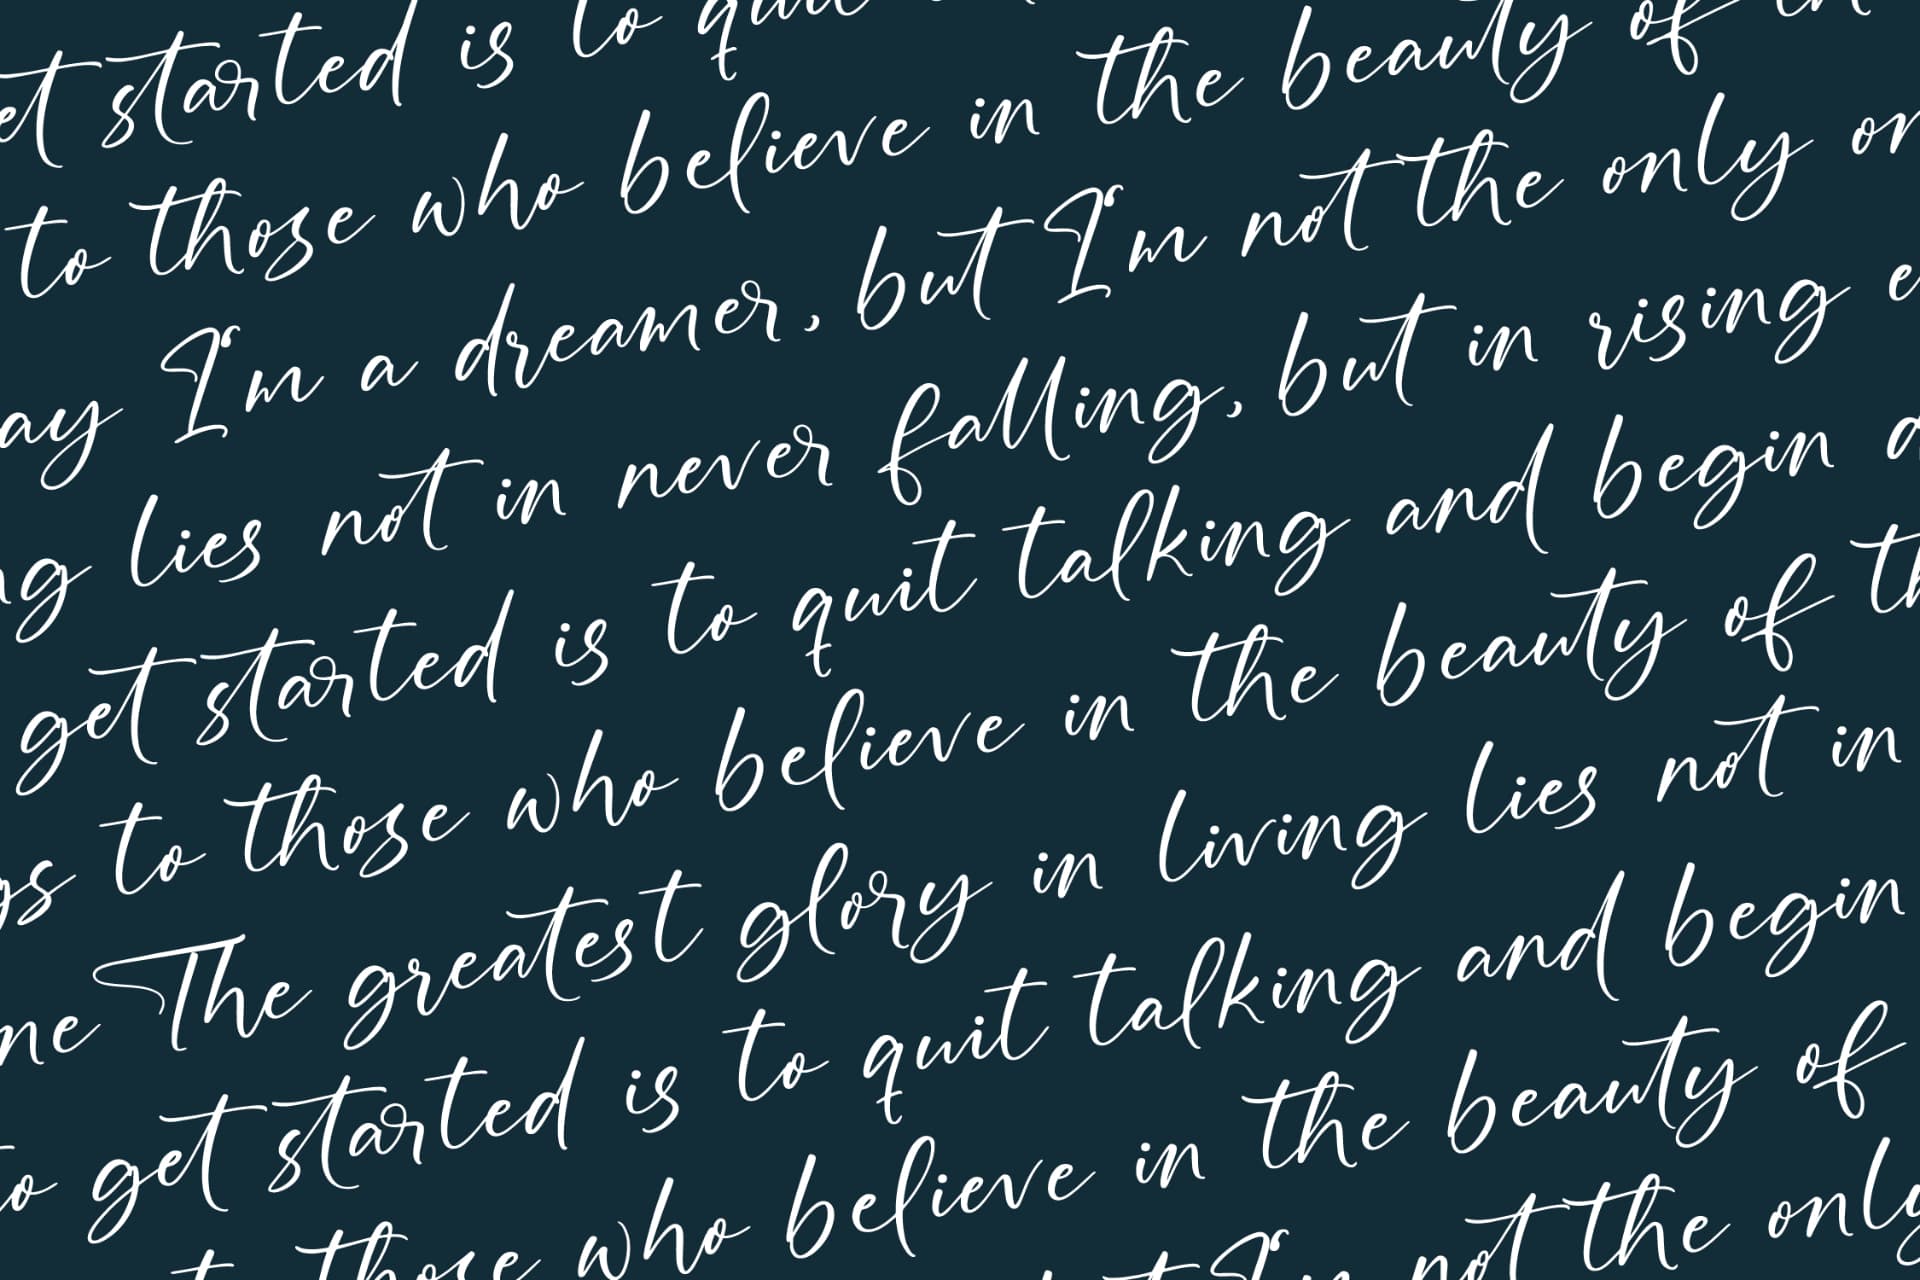 et started is to quit
to those who believe in the beauty of
ay I'm a dreamer, but I'm not the only
ng lies not in never falling, but in rising
get started is to quit talking and begin
gs to those who believe in the beauty of
ne The greatest glory in living lies not in
to get started is to quit talking and begin
to those who believe in the beauty of
but I'm not the only